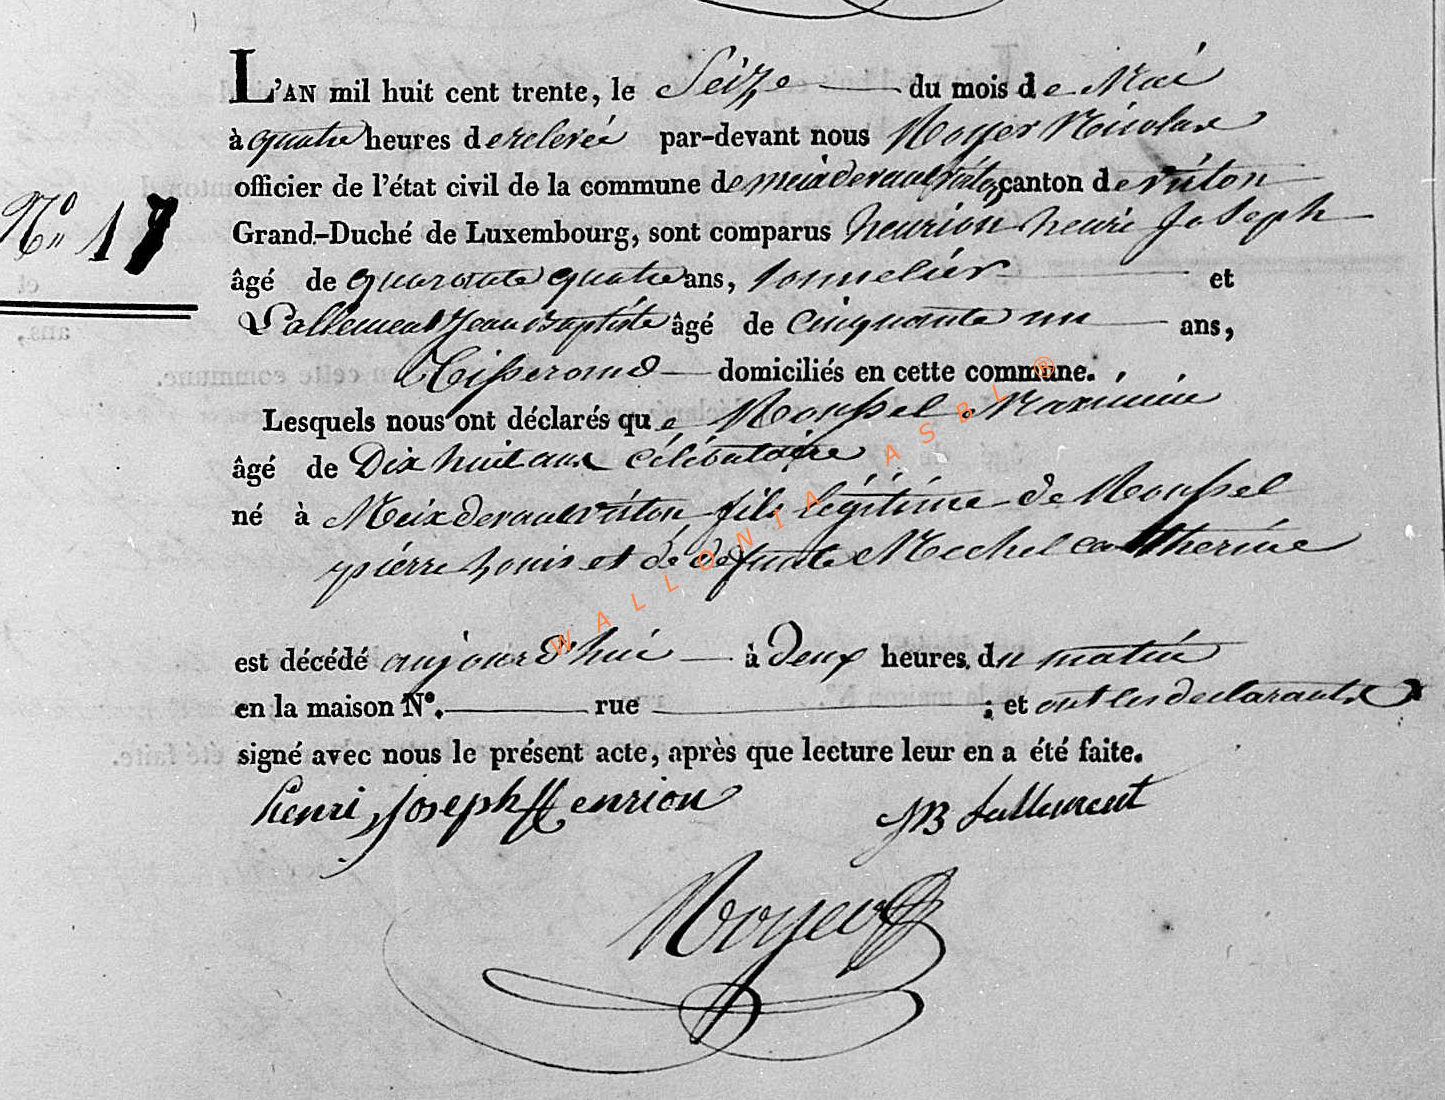 L'AN mil huit cent trente, le Seize du mois de Mai
à quatre heures de relevée par-devant nous Noyer Nicolas
officier de l'état civil de la commune de meix devant virton, canton de virton
N° 17
Grand-Duché de Luxembourg, sont comparus henrion henri Joseph
âgé de quarante quatre ans, tonnelier et
Lallement Jean Baptiste âgé de cinquante un ans,
Tisserand domiciliés en cette commune.
Lesquels nous ont déclarés que Roussel Maximin
âgé de Dix huit ans célibataire
né à Meix devant virton fils légitime de Roussel
pierre Louis et de défunte Mechel catherine
est décédé aujourd'hui à deux heures du matin
en la maison N°. rue ; et ont les declarants
signé avec nous le présent acte, après que lecture leur en a été faite.
henri Joseph Henrion JB Lallement
Noyer
WALLONIA ASBL ®